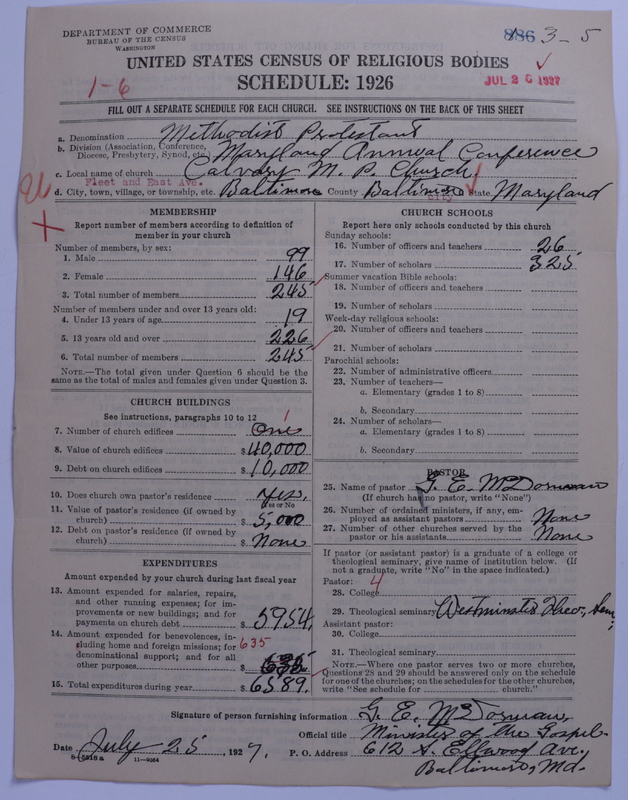 DEPARTMENT OF COMMERCE
BUREAU OF THE CENSUS
WASHINGTON
886 3-5
UNITED STATES CENSUS OF RELIGIOUS BODIES
SCHEDULE: 1926
JUL 26 1927
1-6
FILL OUT A SEPARATE SCHEDULE FOR EACH CHURCH. SEE INSTRUCTIONS ON THE BACK OF THIS SHEET
a. Denomination Methodist Protestant
b. Division (Association, Conference, Diocese, Presbytery, Synod, etc.) Maryland Annual Conference
c. Local name of church Calvary M. P. Church
Fleet and East Ave.
d. City, town, village, or township, etc. Baltimore County Baltimore City State Maryland
MEMBERSHIP
Report number of members according to definition of
member in your church
Number of members, by sex:
1. Male 99
2. Female 146
3. Total number of members 245
Number of members under and over 13 years old:
4. Under 13 years of age 19
5. 13 years old and over 226
6. Total number of members 245
NOTE.—The total given under Question 6 should be
the same as the total of males and females given under Question 3.
CHURCH BUILDINGS
See instructions, paragraphs 10 to 12
7. Number of church edifices One 1
8. Value of church edifices $40,000
9. Debt on church edifices $10,000
10. Does church own pastor's residence Yes.
Yes or No
11. Value of pastor's residence (if owned by
church) $5,000
12. Debt on pastor's residence (if owned by
church) $None
EXPENDITURES
Amount expended by your church during last fiscal year
13. Amount expended for salaries, repairs,
and other running expenses; for im-
provements or new buildings; and for
payments on church debt $5954.
14. Amount expended for benevolences, in-
cluding home and foreign missions; for 635
denominational support; and for all
other purposes $635
15. Total expenditures during year $6589.
CHURCH SCHOOLS
Report here only schools conducted by this church
Sunday schools:
16. Number of officers and teachers 26
17. Number of scholars 325
Summer vacation Bible schools:
18. Number of officers and teachers
19. Number of scholars
Week-day religious schools:
20. Number of officers and teachers
21. Number of scholars
Parochial schools:
22. Number of administrative officers
23. Number of teachers—
a. Elementary (grades 1 to 8)
b. Secondary
24. Number of scholars—
a. Elementary (grades 1 to 8)
b. Secondary
PASTOR
25. Name of pastor G. E. McDorman
(If church has no pastor, write "None")
26. Number of ordained ministers, if any, em-
ployed as assistant pastors None
27. Number of other churches served by the
pastor or his assistants None
If pastor (or assistant pastor) is a graduate of a college or
theological seminary, give name of institution below. (If
not a graduate, write "No" in the space indicated.)
Pastor: 4
28. College
29. Theological seminary Westminster Theo. Sem;
Assistant pastor:
30. College
31. Theological seminary
NOTE.—Where one pastor serves two or more churches,
Questions 28 and 29 should be answered only on the schedule
for one of the churches; on the schedules for the other churches,
write "See schedule for church."
Signature of person furnishing information G. E. McDorman,
Official title Minister of the Gospel
Date July 25, 1927. P. O. Address 612 S. Ellwood Ave.
Baltimore, Md.
11—9064